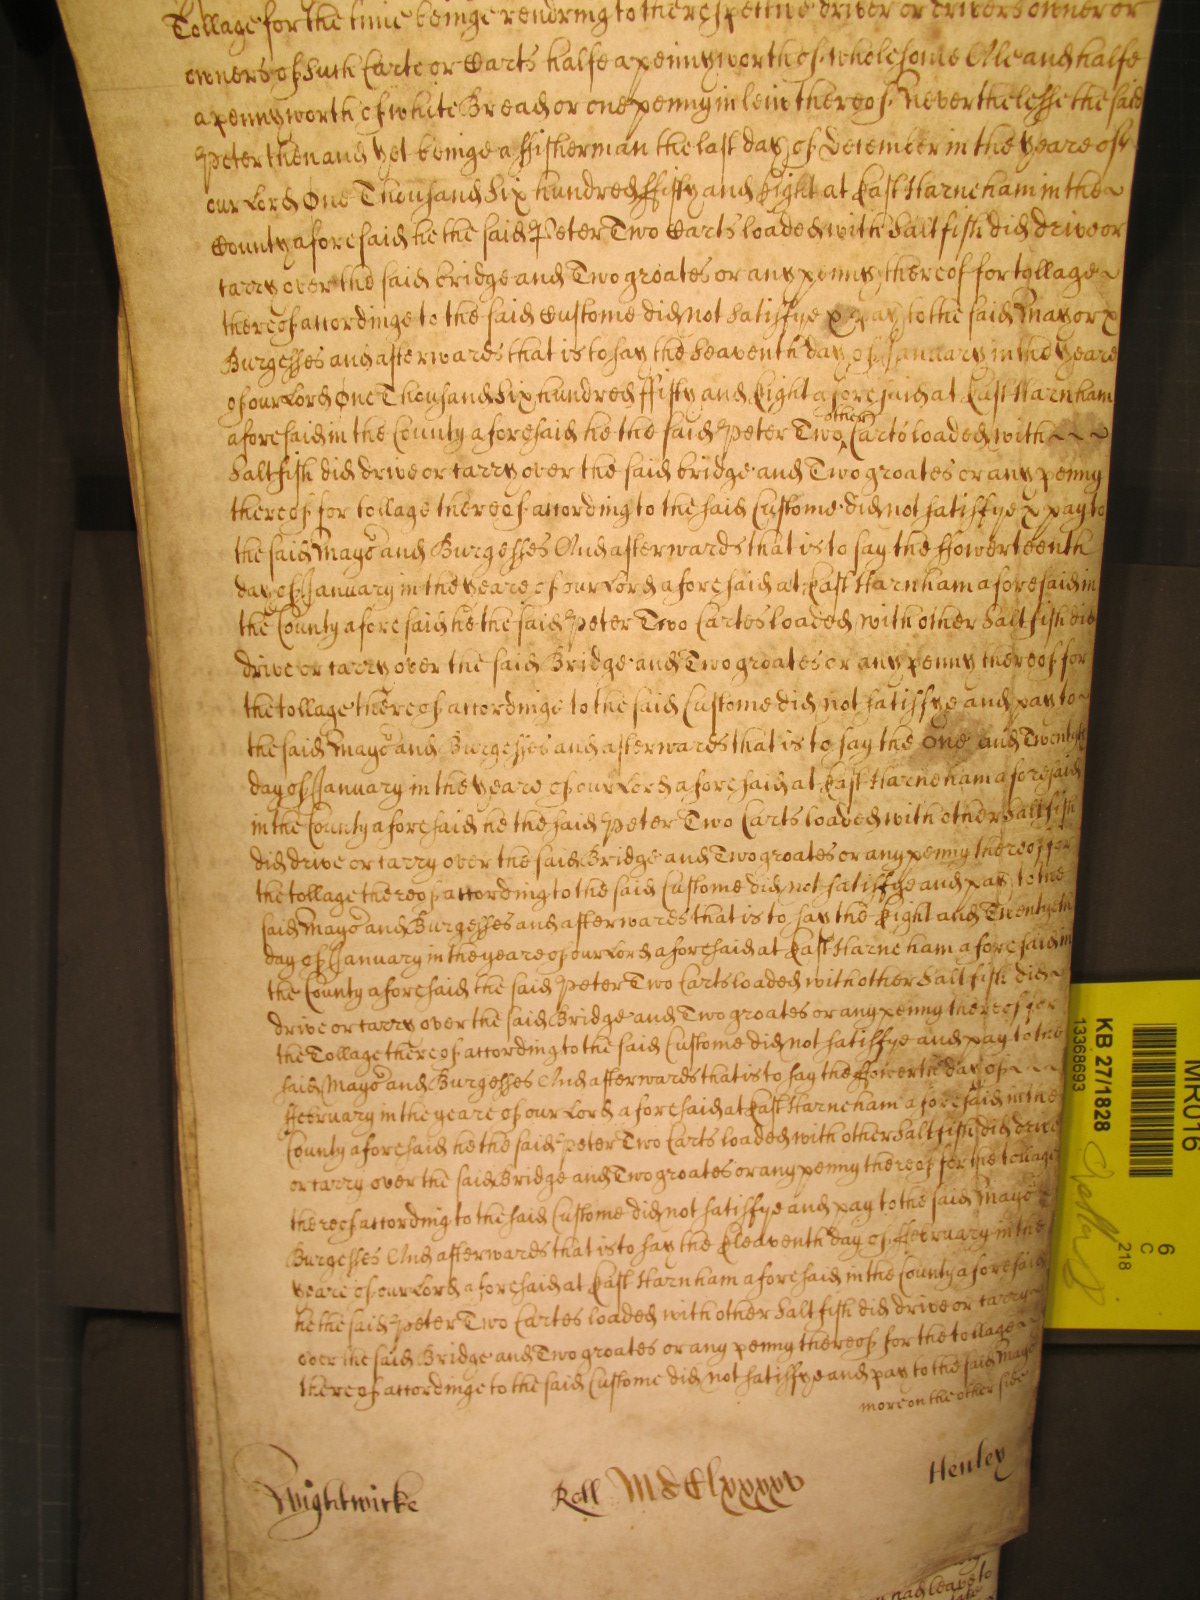 Tollage for the time beinge rendring to the respective driver or drivers owner or
owners of such Carte or Carts halfe a pennyworth of wholesome Ale and halfe
a pennyworth of white Bread or one penny in leiw thereof Neverthelesse the said
Peter then and yet beinge a ffisherman the last day of December in the yeare of
our Lord One Thousand Six hundred ffifty and Eight at East Harneham in the
County aforesaid he the said Peter Two Carts loaded with Salt fish did drive or
carry over the said bridge and Two groates or any penny thereof for tollage
thereof accordinge to the said Custome did not satisfye & pay to the said Mayor &
Burgesses and afterwards that is to say the Seaventh day of January in the yeare
of our Lord One Thousand Six hundred ffifty and Eight aforesaid at East Harnham
aforesaid in the County aforesaid he the said Peter Two other Carts loaded with
Salt fish did drive or carry over the said bridge and Two groates or any penny
thereof for tollage thereof according to the said Custome did not satisfye & pay to
the said Mayor and Burgesses And afterwards that is to say the ffowerteenth
day of January in the yeare of our Lord aforesaid at East Harnham aforesaid in
the County aforesaid he the said Peter Two Cartes loaded with other Salt fish did
drive or carry over the said Bridge and Two groates or any penny thereof for
the tollage thereof accordinge to the said Custome did not satisfye and pay to
the said Mayor and Burgesses and afterwards that is to say the One and Twentyth
day of January in the yeare of our Lord aforesaid at East Harneham aforesaid
in the County aforesaid he the said Peter Two Carts loaded with other Salt fish
did drive or carry over the said Bridge and Two groates or any penny thereof for
the tollage thereof according to the said Custome did not satisfye and pay to the
said Mayor and Burgesses and afterwards that is to say the Eight and Twentyeth
day of January in the yeare of our Lord aforesaid at East Harneham aforesaid in
the County aforesaid he the said Peter Two Carts loaded with other Salt fish did
drive or carry over the said Bridge and Two groates or any penny thereof for
the Tollage thereof according to the said Custome did not satisfye and pay to the
said Mayor and Burgesses And afterwards that is to say the ffowerth day of
ffebruary in the yeare of our Lord aforesaid at East Harneham aforesaid in the
County aforesaid he the said Peter Two Carts loaded with other Salt fish did drive
or carry over the said Bridge and Two groates or any penny thereof for the tollage
thereof according to the said Custome did not satisfye and pay to the said Mayor &
Burgesses And afterwards that is to say the Eleaventh day of ffebruary in the
yeare of our Lord aforesaid at East Harnham aforesaid in the County aforesaid
he the said Peter Two Cartes loaded with other Salt fish did drive or carry
over the said Bridge and Two groates or any penny thereof for the tollage
thereof accordinge to the said Custome did not satisfye and pay to the said Mayor
more on the other side
Wightwicke Roll MDClxxxxv Henley
had leave to
MR016
KB 27/1828
13368693
6
C
218